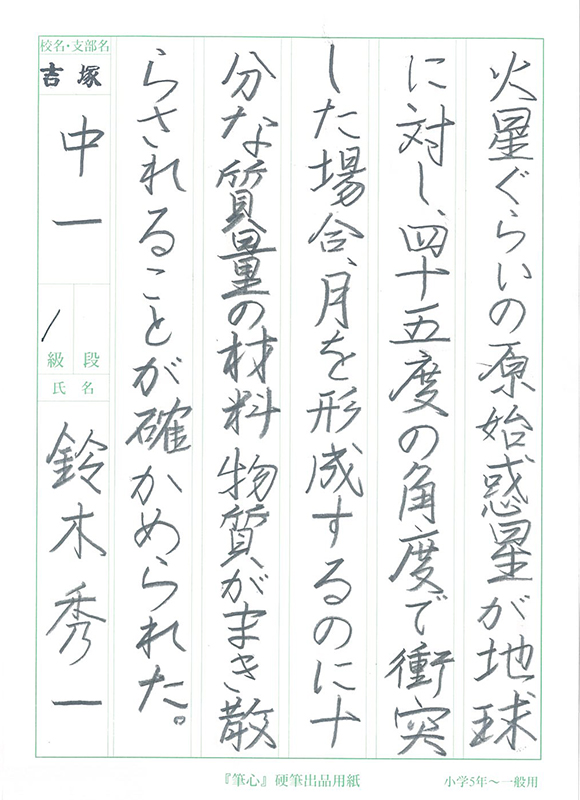 火星ぐらいの原始惑星が地球
に対し、四十五度の角度で衝突
した場合、月を形成するのに十
分な質量の材料物質がまき散
らされることが確かめられた。
校名・支部名
吉塚
中一
1
級段
氏名
鈴木秀一
『筆心』硬筆出品用紙
小学5年〜一般用